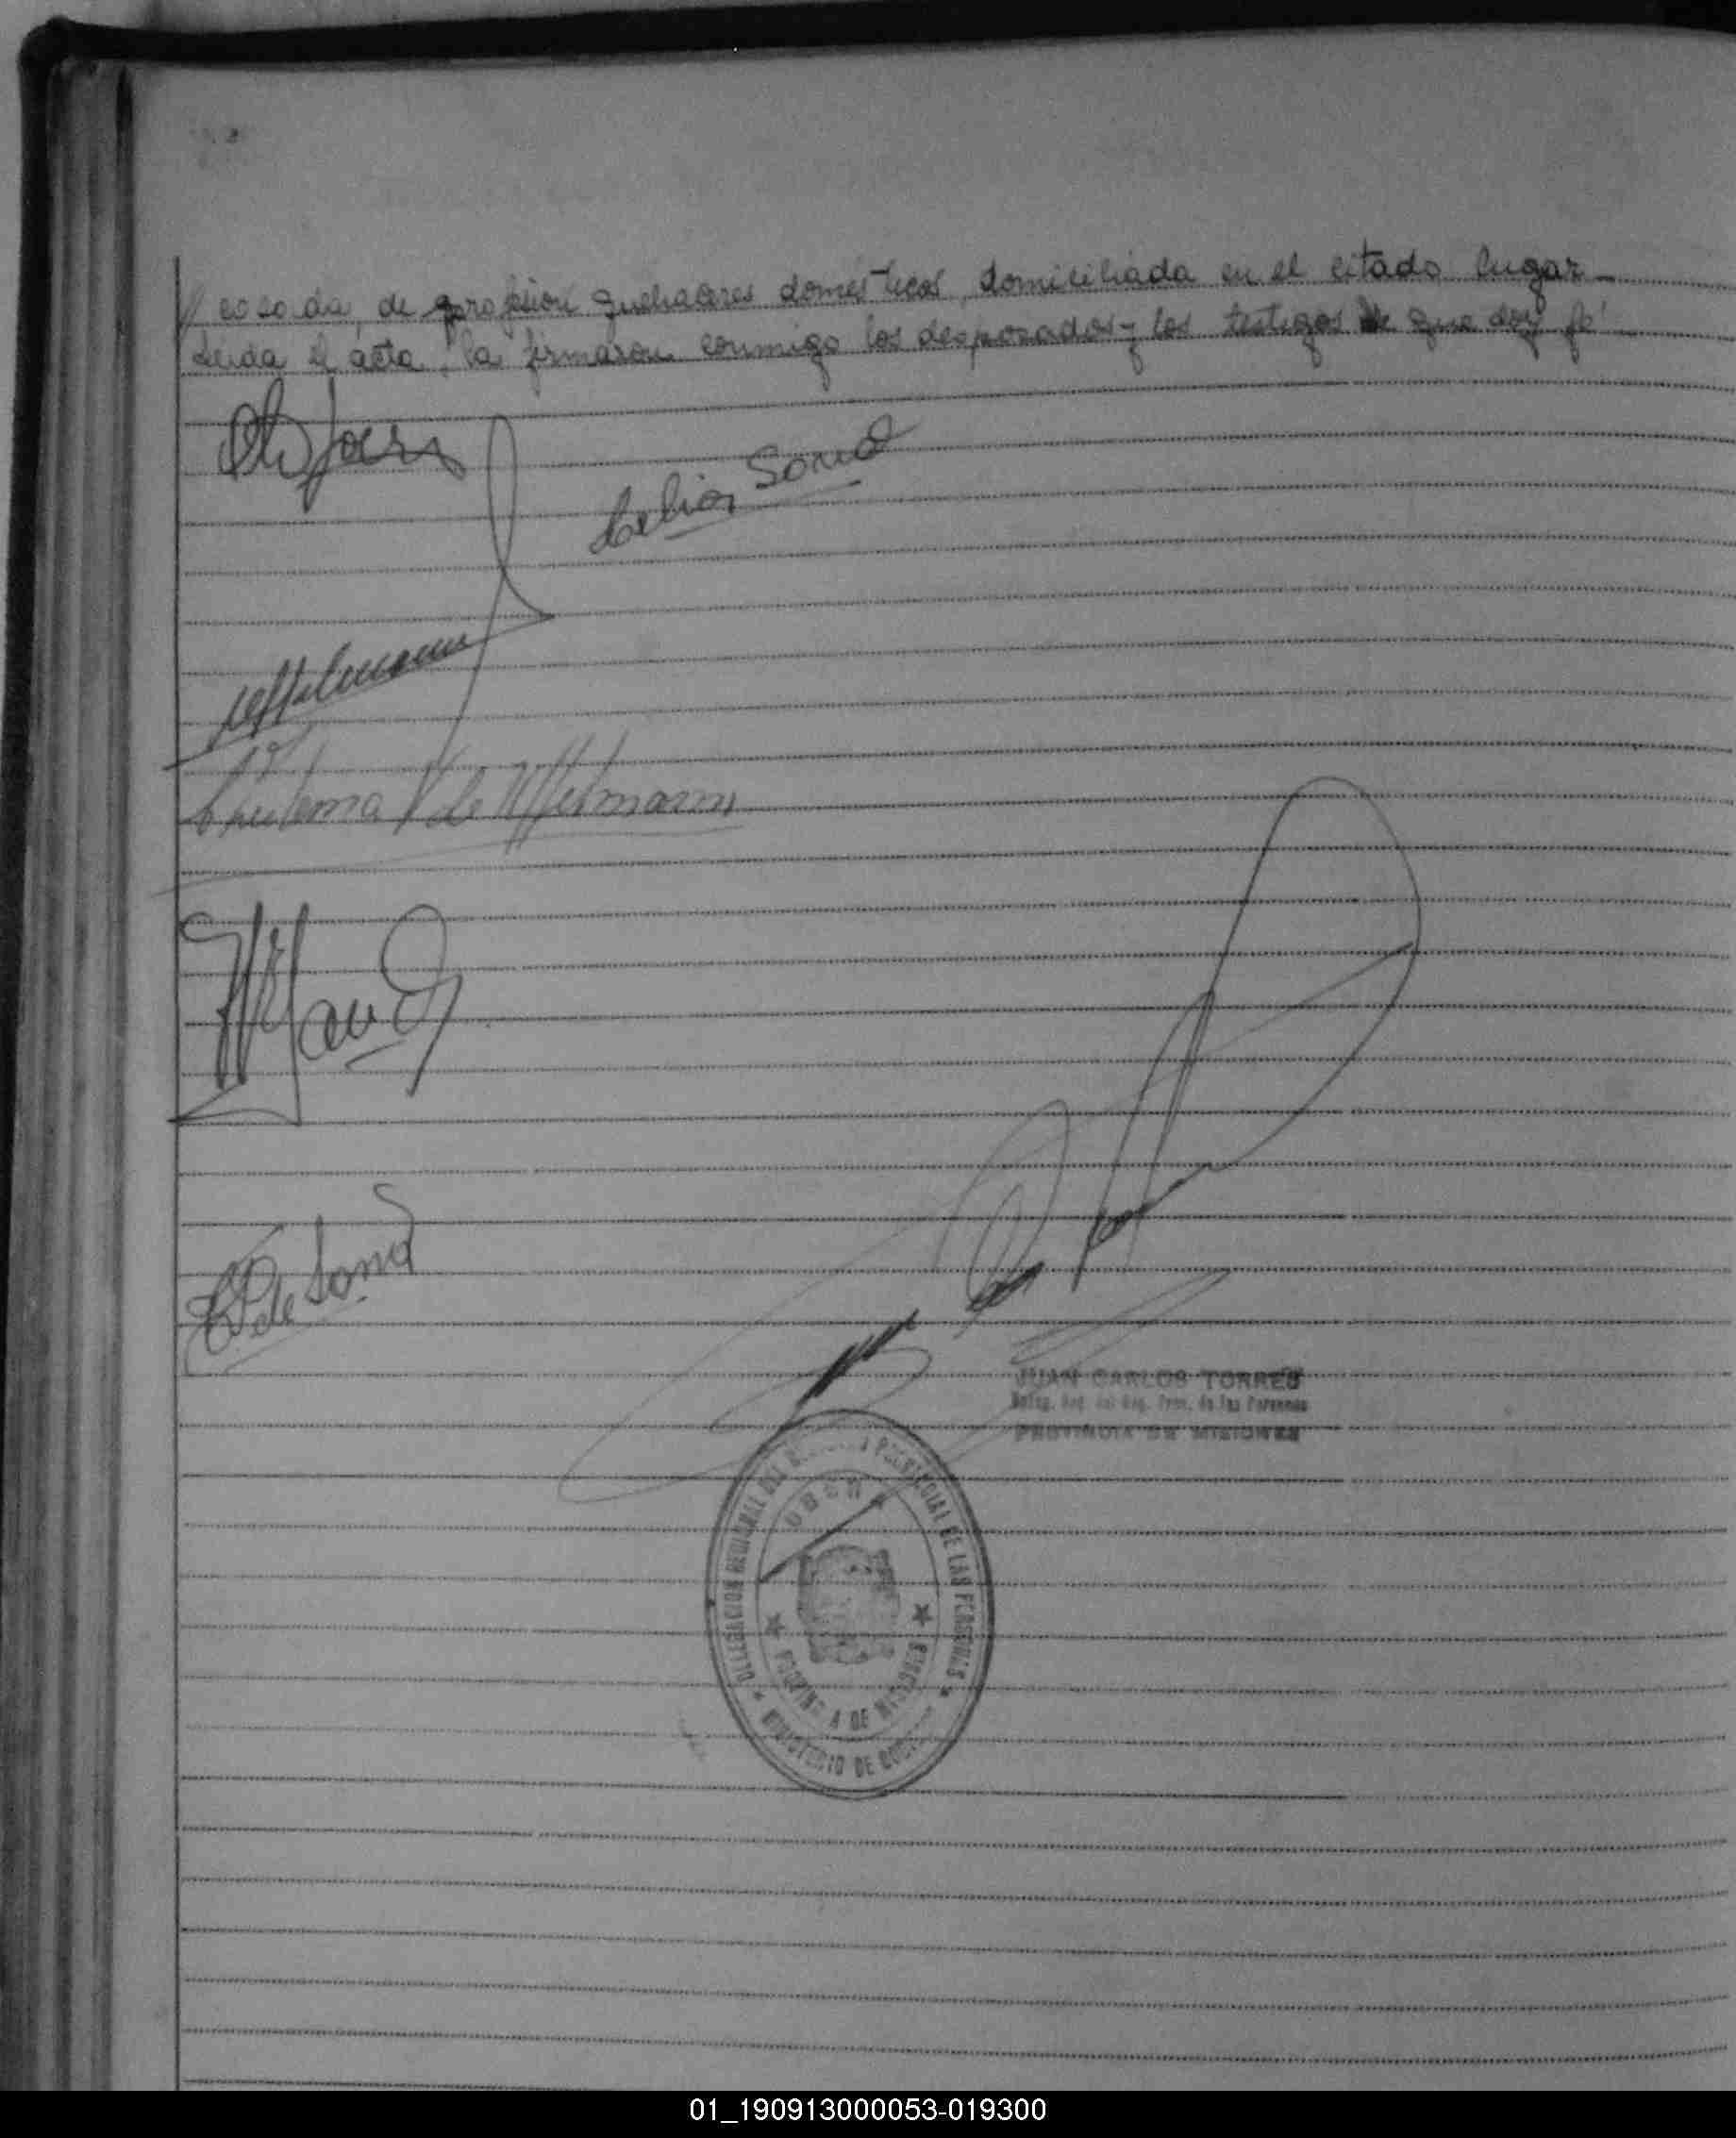 casada, de profesion quehaceres domesticos, domiciliada en el citado lugar
Leida el acta, la firmaron conmigo los desposados y los testigos de que doy fe
Celia Sona
Uffelmann
de Uffelmann
P de Sona
JUAN CARLOS TORRES
Deleg. Reg. del Reg. Prov. de las Personas
PROVINCIA DE MISIONES
DELEGACION REGIONAL DEL PROVINCIAL DE LAS PERSONAS
OBERA
PROVINCIA DE MISIONES
MINISTERIO DE
01_190913000053-019300